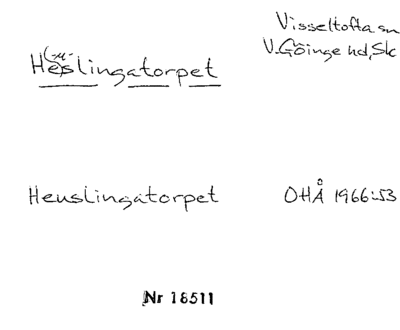 Visseltofta sn
V. Göinge hd, Sk
(-u-
Heslingatorpet
Heuslingatorpet
OHÅ 1966:53
Nr 18511